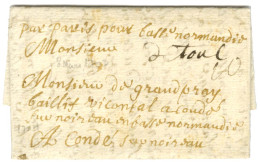 par paris pour basse normandie
Monsieur
de Toul
Monsieur de grandpray
baillif viconial a condé
sur noireau en basse normandie
A Condé sur noireau